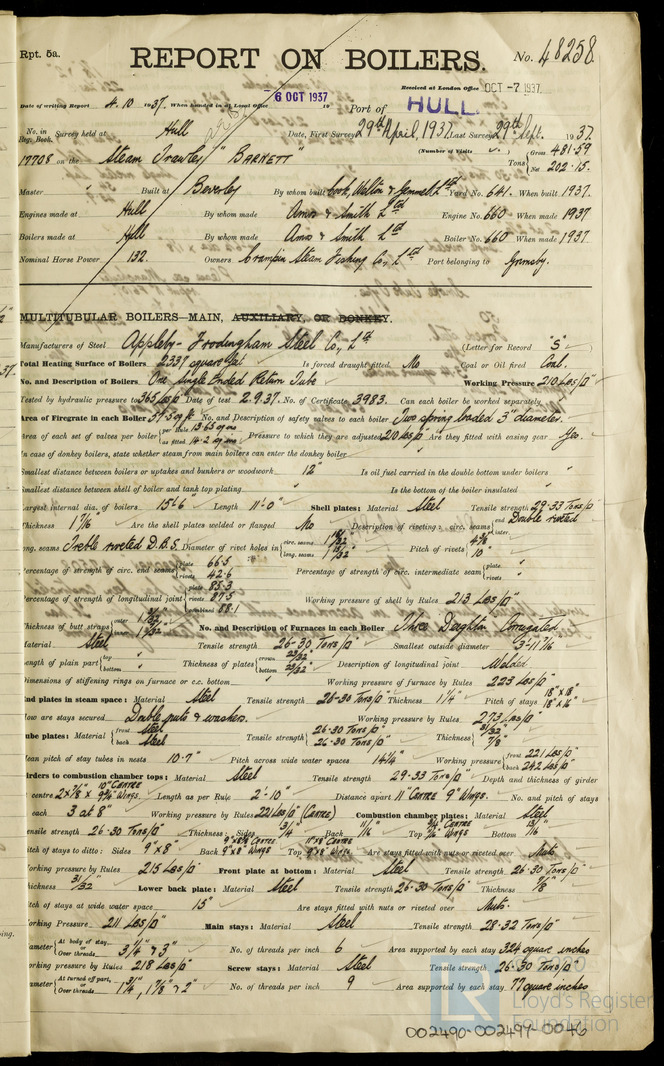 Rpt. 5a.
REPORT ON BOILERS.
No. 48258
Received at London Office OCT -7 1937
Date of writing Report 4. 10 1937. When handed in at Local Office 6 OCT 1937 19 Port of HULL
No. in Reg. Book. Survey held at Hull Date, First Survey 29th April, 1937 Last Survey 29th Sept. 1937.
17708 on the Steam Trawler "BARNETT" (Number of Visits) Tons Gross 481.59 Net 202.15.
Master " Built at Beverley By whom built Cook, Welton & Gemmell Ltd Yard No. 641. When built 1937.
Engines made at Hull By whom made Amos & Smith Ltd Engine No. 660 When made 1937
Boilers made at Hull By whom made Amos & Smith Ltd Boiler No. 660 When made 1937
Nominal Horse Power 132. Owners Crampin Steam Fishing Co., Ltd Port belonging to Grimsby.
MULTITUBULAR BOILERS—MAIN, AUXILIARY, OR DONKEY.
Manufacturers of Steel Appleby-Frodingham Steel Co., Ltd (Letter for Record "S")
Total Heating Surface of Boilers 2337 square feet Is forced draught fitted No Coal or Oil fired Coal.
No. and Description of Boilers One Single Ended Return Tube Working Pressure 210 Lbs/□"
Tested by hydraulic pressure to 365 Lbs/□" Date of test 2.9.37. No. of Certificate 3983. Can each boiler be worked separately "
Area of Firegrate in each Boiler 57.5 sq ft No. and Description of safety valves to each boiler Two spring loaded 3" diameter.
Area of each set of valves per boiler per Rule 13.65 sq ins as fitted 14.2 sq ins Pressure to which they are adjusted 210 Lbs/□" Are they fitted with easing gear Yes.
In case of donkey boilers, state whether steam from main boilers can enter the donkey boiler
Smallest distance between boilers or uptakes and bunkers or woodwork 12" Is oil fuel carried in the double bottom under boilers "
Smallest distance between shell of boiler and tank top plating " Is the bottom of the boiler insulated "
Largest internal dia. of boilers 15'-6" Length 11'-0" Shell plates: Material Steel Tensile strength 29-33 Tons/□"
Thickness 1 7/16" Are the shell plates welded or flanged No Description of riveting: circ. seams end Double riveted inter. "
long. seams Treble riveted D.B.S. Diameter of rivet holes in circ. seams long. seams Pitch of rivets 10"
Percentage of strength of circ. end seams plate 66.5 rivets 42.6 Percentage of strength of circ. intermediate seam plate " rivets "
Percentage of strength of longitudinal joint plate 85.3 rivets 87.5 combined 88.1 Working pressure of shell by Rules 213 Lbs/□"
Thickness of butt straps outer inner No. and Description of Furnaces in each Boiler Three Deighton Corrugated
Material Steel Tensile strength 26-30 Tons/□" Smallest outside diameter 3'-11 7/16
Length of plain part top " bottom " Thickness of plates crown 23/32" bottom 23/32" Description of longitudinal joint Welded
Dimensions of stiffening rings on furnace or c.c. bottom " Working pressure of furnace by Rules 223 Lbs/□"
End plates in steam space: Material Steel Tensile strength 26-30 Tons/□" Thickness 1 1/4" Pitch of stays 18" x 18" 18" x 16"
How are stays secured Double nuts & washers. Working pressure by Rules 273 Lbs/□"
Tube plates: Material front Steel back Steel Tensile strength 26-30 Tons/□" 26-30 Tons/□" Thickness 31/32" 7/8"
Mean pitch of stay tubes in nests 10.7" Pitch across wide water spaces 14 1/4" Working pressure front 221 Lbs/□" back 242 Lbs/□"
Girders to combustion chamber tops: Material Steel Tensile strength 29-33 Tons/□" Depth and thickness of girder
at centre Length as per Rule 2'-10" Distance apart 11" Centre 9" Wings. No. and pitch of stays
in each 3 at 8" Working pressure by Rules 221 Lbs/□" (Centre) Combustion chamber plates: Material Steel
Tensile strength 26-30 Tons/□" Thickness: Sides 3/4" Back 11/16" Top 3/4" Centre 11/16" Wings Bottom 11/16"
Pitch of stays to ditto: Sides 9" x 8" Back 9" x 8" Wings Top 11" x 8" Centre 9" x 8" Wings Are stays fitted with nuts or riveted over Nuts
Working pressure by Rules 215 Lbs/□" Front plate at bottom: Material Steel Tensile strength 26-30 Tons/□"
Thickness 31/32" Lower back plate: Material Steel Tensile strength 26-30 Tons/□" Thickness 7/8"
Pitch of stays at wide water space 15" Are stays fitted with nuts or riveted over Nuts.
Working Pressure 211 Lbs/□" Main stays: Material Steel Tensile strength 28-32 Tons/□"
Diameter At body of stay, or Over threads 3 1/4" & 3" No. of threads per inch 6 Area supported by each stay 324 square inches
Working pressure by Rules 218 Lbs/□" Screw stays: Material Steel Tensile strength 26-30 Tons/□"
Diameter At turned off part, or Over threads 1 3/4", 1 7/8" & 2" No. of threads per inch 9 Area supported by each stay 77 square inches
© 2020
LR
Lloyd's Register
Foundation
002490-002499-0046